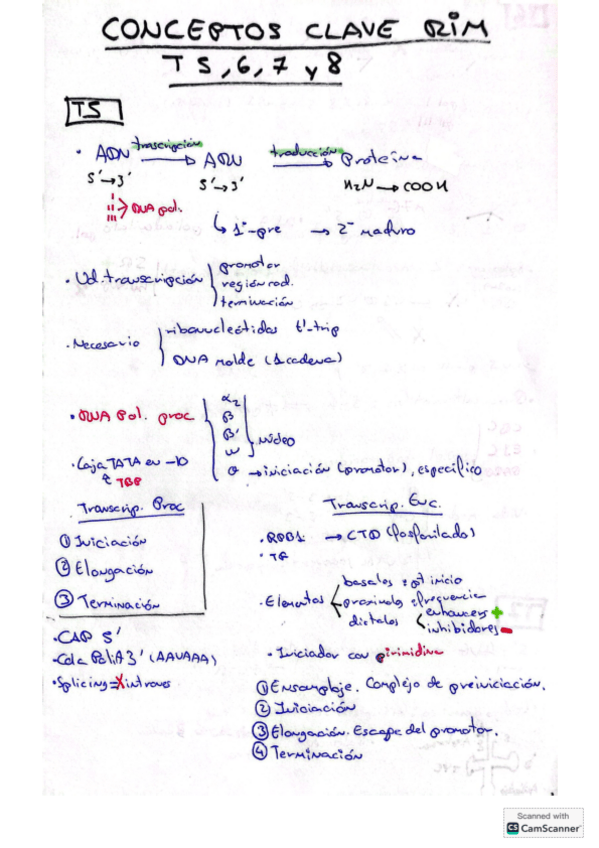 CONCEPTOS CLAVE RIM
T 5, 6, 7 y 8
T5
· ADN transcripción → ARN traducción → Proteína
5'→3' 5'→3' H₂N → COOH
RNA pol.
↳ 1º pre → 2º maduro
· Ud. transcripción { promotor
región cod.
terminación
· Necesario { ribonucleótidos t'-trip
DNA molde (1 cadena)
· RNA Pol. proc { α₂
β
β'
ω } núcleo
σ → iniciación (promotor), específico
· Caja TATA en -10
TBP
Transcrip. Proc
① Iniciación
② Elongación
③ Terminación
· CAP 5'
· Cola PoliA 3' (AAUAAA)
· Splicing = X intrones
Transcrip. Euc.
· RPB1 → CTD (fosforilado)
· TF
· Elementos basales: pt inicio
proximales: frecuencia
distales enhancers +
inhibidores -
· Iniciador con pirimidina
① Ensamblaje. Complejo de preiniciación.
② Iniciación
③ Elongación. Escape del promotor.
④ Terminación
Scanned with
CS CamScanner